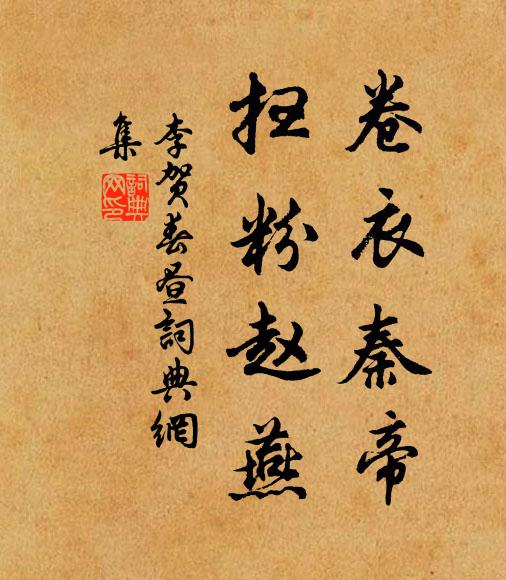 卷衣秦帝
扫粉赵燕
李贺春昼詞典網
集
詞典网印